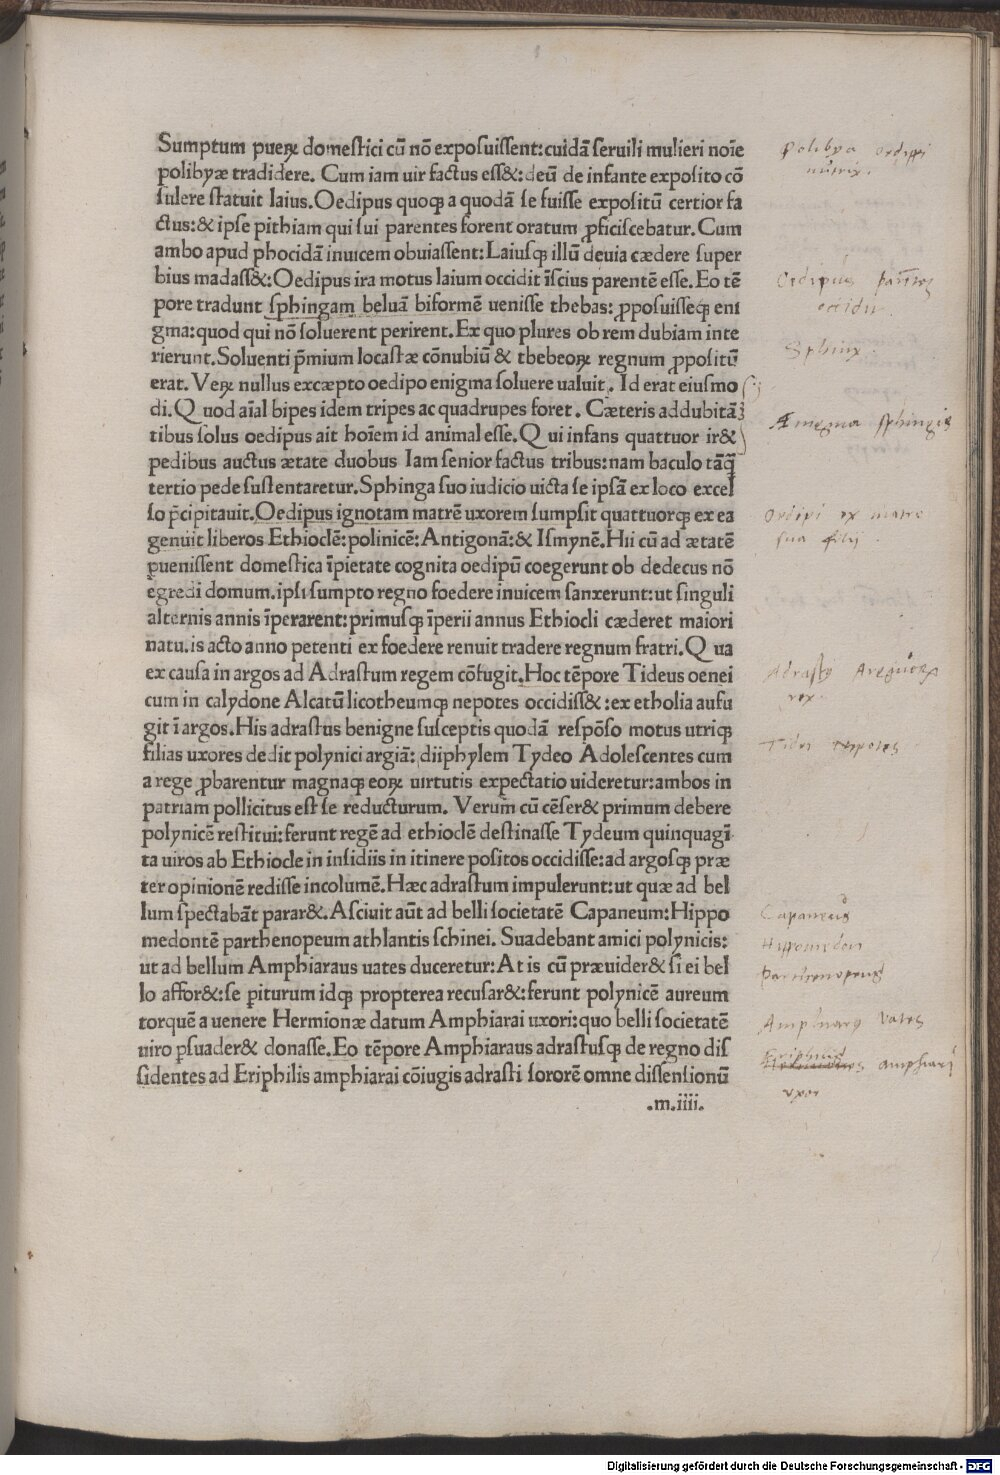 Sumptum pueꝝ domestici cū nō exposuissent: cuidā seruili mulieri noīe
polibyæ tradidere. Cum iam uir factus ess&: deū de infante exposito cō
sulere statuit laius. Oedipus quoqꝫ a quodā se fuisse expositū certior fa
ctus: & ipse pithiam qui sui parentes forent oratum ꝓficiscebatur. Cum
ambo apud phocidā inuicem obuiassent: Laiusqꝫ illū deuia cædere super
bius madass&: Oedipus ira motus laium occidit īscius parentē esse. Eo tē
pore tradunt sphingam beluā biformē uenisse thebas: ꝓposuisseqꝫ eni
gma: quod qui nō soluerent perirent. Ex quo plures ob rem dubiam inte
rierunt. Soluenti p̄mium locastæ cōnubiū & thebeoꝝ regnum ꝓpositū
erat. Veꝝ nullus excæpto oedipo enigma soluere ualuit. Id erat eiusmo
di. Quod aīal bipes idem tripes ac quadrupes foret. Cæteris addubitā
tibus solus oedipus ait hoīem id animal esse. Qui infans quattuor ir&
pedibus auctus ætate duobus Iam senior factus tribus: nam baculo tāq̄
tertio pede sustentaretur. Sphinga suo iudicio uicta se ipsā ex loco excel
so p̄cipitauit. Oedipus ignotam matrē uxorem sumpsit quattuorqꝫ ex ea
genuit liberos Ethioclē: polinicē: Antigonā: & Ismynē. Hii cū ad ætatē
puenissent domestica īpietate cognita oedipū coegerunt ob dedecus nō
egredi domum. ipsi sumpto regno foedere inuicem sanxerunt: ut singuli
alternis annis īperarent: primusqꝫ īperii annus Ethiocli cæderet maiori
natu. is acto anno petenti ex foedere renuit tradere regnum fratri. Qua
ex causa in argos ad Adrastum regem cōfugit. Hoc tēpore Tideus oenei
cum in calydone Alcatū licotheumqꝫ nepotes occidiss&: ex etholia aufu
git ī argos. His adrastus benigne susceptis quodā respōso motus utriqꝫ
filias uxores dedit polynici argiā: diiphylem Tydeo Adolescentes cum
a rege ꝓbarentur magnaqꝫ eoꝝ uirtutis expectatio uideretur: ambos in
patriam pollicitus est se reducturum. Verum cū cēser& primum debere
polynicē restitui: ferunt regē ad ethioclē destinasse Tydeum quinquagī
ta uiros ab Ethiocle in insidiis in itinere positos occidisse: ad argosqꝫ præ
ter opinionē redisse incolumē. Hæc adrastum impulerunt: ut quæ ad bel
lum spectabāt parar&. Asciuit aūt ad belli societatē Capaneum: Hippo
medontē parthenopeum athlantis schinei. Suadebant amici polynicis:
ut ad bellum Amphiaraus uates duceretur: At is cū præuider& si ei bel
lo affor&: se piturum idqꝫ propterea recusar&: ferunt polynicē aureum
torquē a uenere Hermionæ datum Amphiarai uxori: quo belli societatē
uiro psuader& donasse. Eo tēpore Amphiaraus adrastusqꝫ de regno dis
sidentes ad Eriphilis amphiarai cōiugis adrasti sororē omne dissensionū
.m.iiii.
Polibya oedippi
nutrix.
Oedipus
occidit
Sphinx.
Ænegma sphingis
Oedipi ex matre
sua filij
Adrastꝰ
rex.
Tidei nepotes
Capaneus
Hyppomedon
Parthenopeus
Amphiarꝰ vates
Eriphiles amphiarai
vxor
Digitalisierung gefördert durch die Deutsche Forschungsgemeinschaft - DFG